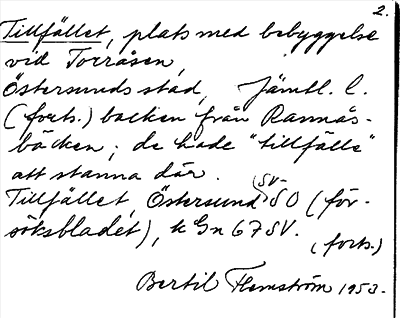 2.
Tillfället, plats med bebyggelse
vid Torråsen,
Östersunds stad, Jämtl. l.
(forts.) backen från Rannås-
bäcken; de hade "tillfälle"
att stanna där.
Tillfället, Östersund SV-SO (för-
söksbladet), k Gn 67 SV.
(forts.)
Bertil Flemström 1953.